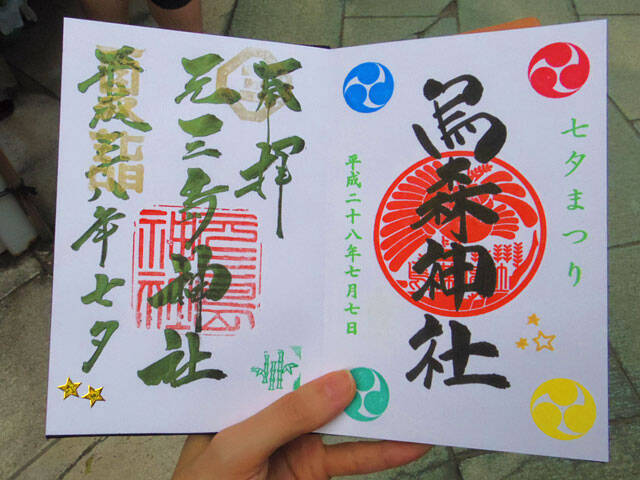 七夕まつり
烏森神社
平成二十八年七月七日
奉拝
元三島神社
元三島
神社
平成廿八年七夕